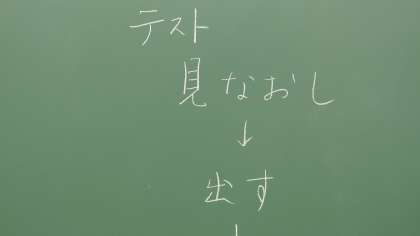 テスト
見なおし
↓
出す